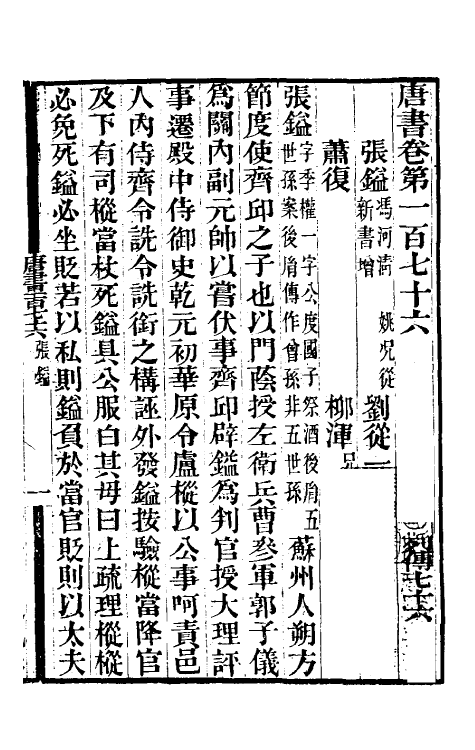 唐書卷第一百七十六
列傳七十六
張鎰馮河清 姚況從新書增 劉從一
蕭復 柳渾兄
張鎰字季權一字公度國子祭酒後胤五世孫案後胤傳作曾孫非五世孫蘇州人朔方
節度使齊邱之子也以門蔭授左衛兵曹參軍郭子儀
為關內副元帥以嘗伏事齊邱辟鎰為判官授大理評
事遷殿中侍御史乾元初華原令盧樅以公事呵責邑
人內侍齊令詵令詵銜之構誣外發鎰按驗樅當降官
及下有司樅當杖死鎰具公服白其母曰上疏理樅樅
必免死鎰必坐貶若以私則鎰負於當官貶則以太夫
唐書百七六 張鎰
一